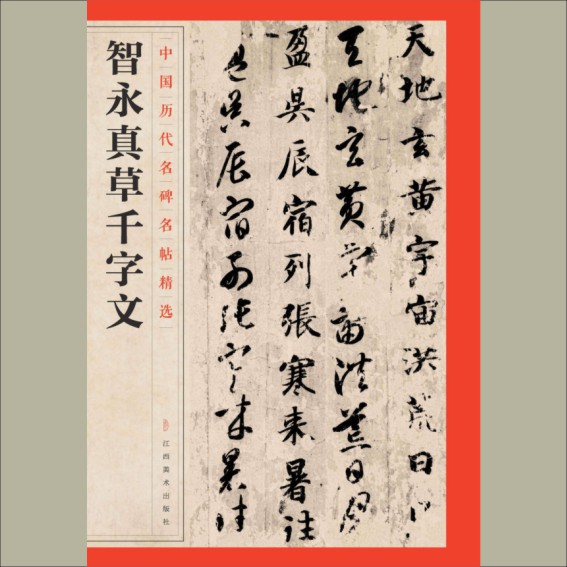 智永真草千字文
中国历代名碑名帖精选
江西美术出版社
天地玄黄宇宙洪荒日月
天地玄黄宇宙洪荒日月
盈昃辰宿列張寒来暑往
盈昃辰宿列張寒来暑往